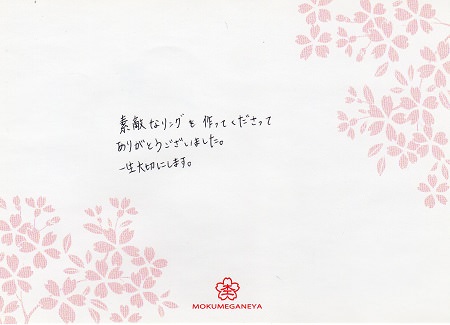 素敵なリングを作ってくださって
ありがとうございました。
一生大切にします。
MOKUMEGANEYA